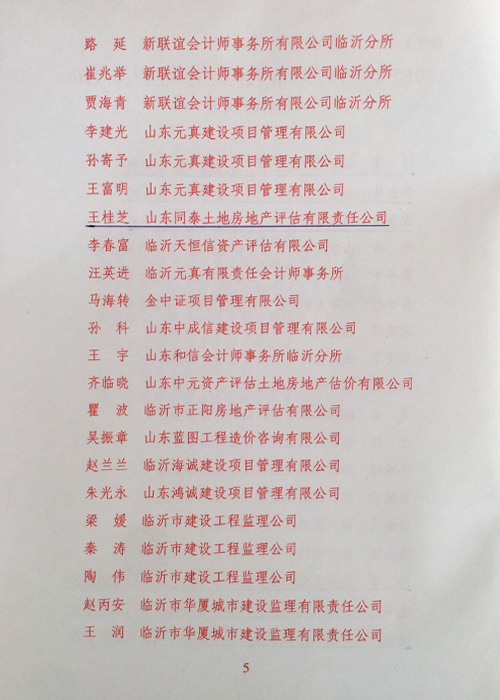 路 延 新联谊会计师事务所有限公司临沂分所
崔兆举 新联谊会计师事务所有限公司临沂分所
贾海青 新联谊会计师事务所有限公司临沂分所
李建光 山东元真建设项目管理有限公司
孙寄予 山东元真建设项目管理有限公司
王富明 山东元真建设项目管理有限公司
王桂芝 山东同泰土地房地产评估有限责任公司
李春富 临沂天恒信资产评估有限公司
汪英进 临沂元真有限责任会计师事务所
马海转 金中证项目管理有限公司
孙 科 山东中成信建设项目管理有限公司
王 宇 山东和信会计师事务所临沂分所
齐临晓 山东中元资产评估土地房地产估价有限公司
瞿 波 临沂市正阳房地产评估有限公司
吴振章 山东蓝图工程造价咨询有限公司
赵兰兰 临沂海诚建设项目管理有限公司
朱光永 山东鸿诚建设项目管理有限公司
梁 媛 临沂市建设工程监理公司
秦 涛 临沂市建设工程监理公司
陶 伟 临沂市建设工程监理公司
赵丙安 临沂市华厦城市建设监理有限责任公司
王 润 临沂市华厦城市建设监理有限责任公司
5